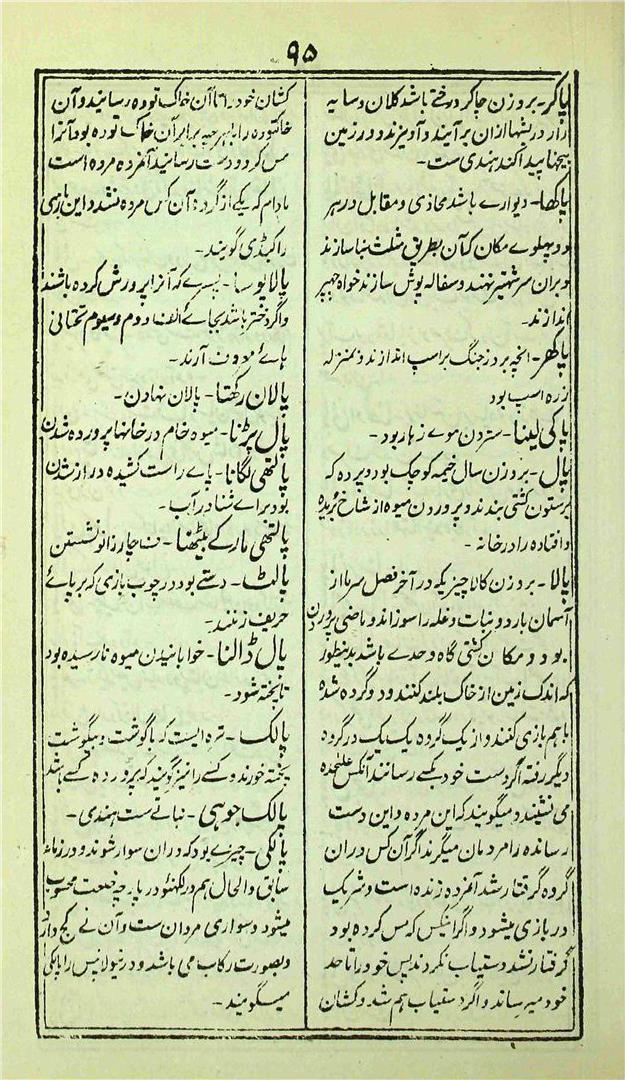 ۹۵
پاکر۔ بروزن چاکر درختے باشد کلان و سایه
دار در یشها ازان برآیند و آویزند و در زمین
بیخها پیدا کند هندی ست۔
پاکها۔ دیوارے باشد محاذی و مقابل در هر
دو پهلوے مکان که آن بطریق مثلث بنا سازند
و بران سر شهتیر نهند و سفاله پوش سازند خواه چهپر
اندازند۔
پاکهر۔ انچه بروز جنگ بر اسپ اندازند و بمنزله
زره اسپ بود
پاکی لینا۔ ستردن موے زهار بود۔
پال۔ بروزن سال خیمه کوچک بود و پرده که
برستون کشتی بندند و پروردن میوه از شاخ بریده
و افتاده را در خانه۔
پالا۔ بروزن کالا چیزیکه در آخر فصل سرما از
آسمان بارد و نبات و غله را سوزاند و ماضی پروردن
بود و مکان کشتی گاه و حدے باشد بدینطور
که اندک زمین از خاک بلند کنند و دو گرده شده
باهم بازی کنند و از یک گروه یک یک در گروه
دیگر رفته اگر دست خود بکسے رسانند آنکس علیحده
می نشیند و میگویند که این مرده و این دست
رساننده را مردمان میگیرند اگر آن کس دران
گروه گرفتار شد آنمرده زنده است و شریک
در بازی میشود و اگر آنکس که مس کرده بود
گرفتار نشد و ستیاب نکردند پس خود را تا حد
خود میرساند و اگر دستیاب هم شد و کشان
کشان خود را تا آن خاک توده رسانید و آن
خاکتوده را یا هرچه برابر آن خاک توده بود آنرا
مس کرد و دست رسانید آنمرده مرده است
مادام که یکے از گروه آن کس مرده نشد و این بازی
را کبڈی گویند۔
پالا پوسا۔ پسرے که آنرا پرورش کرده باشند
و اگر دختر باشد بجاے الف دوم و سیوم تحتانی
هاے معروف آرند۔
پالان رکهنا۔ پالان نهادن۔
پال پڑنا۔ میوه خام در خانها پرورده شدن
پالتهی لگانا۔ پاے راست کشیده دراز شدن
بود براے شنا در آب۔
پالتهی مار کے بیٹهنا۔ چارزانو نشستن
پالٹ۔ دستے بود در چوب بازی که بر پاے
حریف زنند۔
پال ڈالنا۔ خوابانیدن میوه نارسیده بود
تا پخته شود۔
پالک۔ تره ایست که با گوشت و بیگوشت
پخته خورند و کسے را نیز گویند که پرورده کسے باشد
پالک جوهی۔ نباتے ست هندی۔
پالکی۔ چیزے بود که دران سوار شوند و در زمانه
سابق و الحال هم در لکهنؤ در پارچه خلعت محسوب
میشود و سواری مردان ست و آن نے کج دار
و بصورت رکاب می باشد و در نیولا نیس را پالکی
میگویند۔